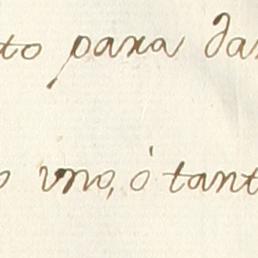 to para dar
o vno, ó tant